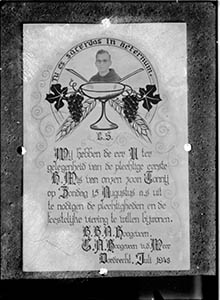 Tu es sacerdos in aeternum.
L.S.
Wij hebben de eer U ter
gelegenheid van de plechtige eerste
H. Mis van onzen zoon Tonny
op Zondag 15 Augustus a.s uit
te nodigen de plechtigheden en de
feestelijke viering te willen bijwonen.
Hoogeveen.
Hoogeveen v.d. Meer
Dordrecht, Juli 1948